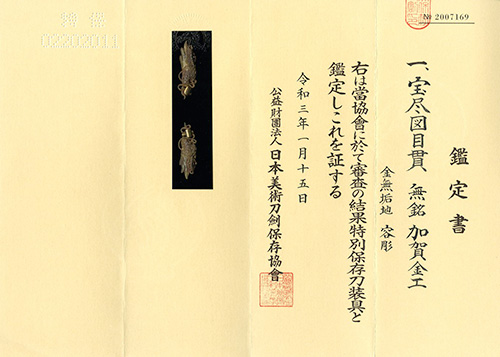 № 2007169
鑑定書
一、宝尽図目貫、無銘 加賀金工
金無垢地 容彫
右は當協會に於て審査の結果特別保存刀装具と
鑑定しこれを証する
令和三年一月十五日
公益財團法人 日本美術刀剣保存協會
02202011